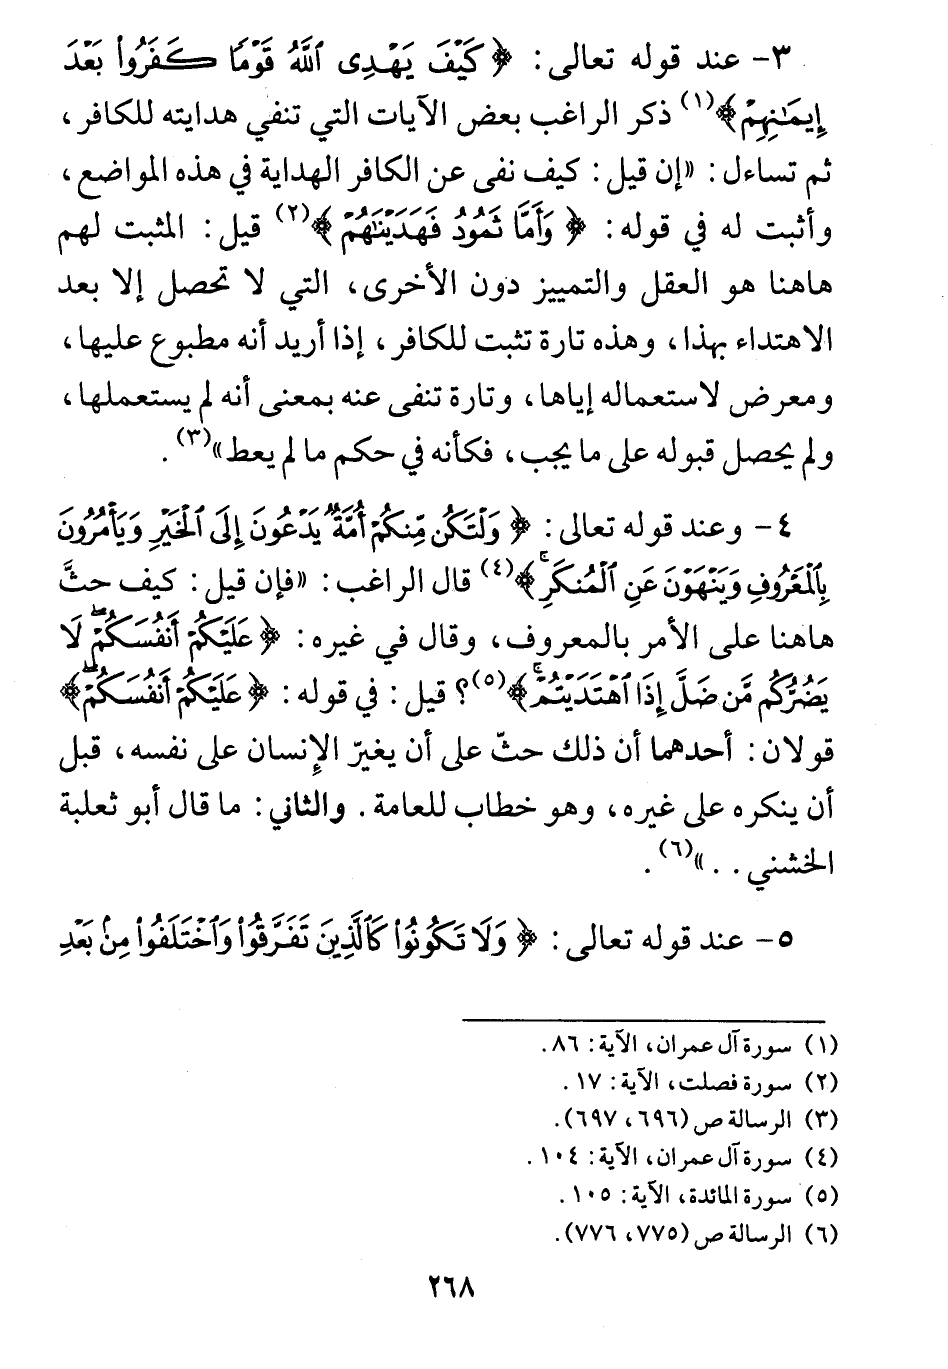 ٣- عند قوله تعالى: ﴿ كَيْفَ يَهْدِى ٱللَّهُ قَوْمًا كَفَرُوا۟ بَعْدَ
إِيمَـٰنِهِمْ﴾(١) ذكر الراغب بعض الآيات التي تنفي هدايته للكافر،
ثم تساءل: «إن قيل: كيف نفى عن الكافر الهداية في هذه المواضع،
وأثبت له في قوله: ﴿ وَأَمَّا ثَمُودُ فَهَدَيْنَـٰهُمْ ﴾(٢) قيل: المثبت لهم
هاهنا هو العقل والتمييز دون الأخرى، التي لا تحصل إلا بعد
الاهتداء بهذا، وهذه تارة تثبت للكافر، إذا أريد أنه مطبوع عليها،
ومعرض لاستعماله إياها، وتارة تنفى عنه بمعنى أنه لم يستعملها،
ولم يحصل قبوله على ما يجب، فكأنه في حكم ما لم يعط»(٣).
٤- وعند قوله تعالى: ﴿ وَلْتَكُن مِّنكُمْ أُمَّةٌ يَدْعُونَ إِلَى ٱلْخَيْرِ وَيَأْمُرُونَ
بِٱلْمَعْرُوفِ وَيَنْهَوْنَ عَنِ ٱلْمُنكَرِ ۚ ﴾(٤) قال الراغب: «فإن قيل: كيف حثَّ
هاهنا على الأمر بالمعروف، وقال في غيره: ﴿ عَلَيْكُمْ أَنفُسَكُمْ ۖ لَا
يَضُرُّكُم مَّن ضَلَّ إِذَا ٱهْتَدَيْتُمْ ۚ ﴾(٥)؟ قيل: في قوله: ﴿ عَلَيْكُمْ أَنفُسَكُمْ ۖ ﴾
قولان: أحدهما أن ذلك حثّ على أن يغيّر الإنسان على نفسه، قبل
أن ينكره على غيره، وهو خطاب للعامة. والثاني: ما قال أبو ثعلبة
الخشني . . »(٦).
٥- عند قوله تعالى: ﴿ وَلَا تَكُونُوا۟ كَٱلَّذِينَ تَفَرَّقُوا۟ وَٱخْتَلَفُوا۟ مِنۢ بَعْدِ
(١) سورة آل عمران، الآية: ٨٦.
(٢) سورة فصلت، الآية: ١٧.
(٣) الرسالة ص (٦٩٦، ٦٩٧).
(٤) سورة آل عمران، الآية: ١٠٤.
(٥) سورة المائدة، الآية: ١٠٥.
(٦) الرسالة ص (٧٧٥، ٧٧٦).
٢٦٨